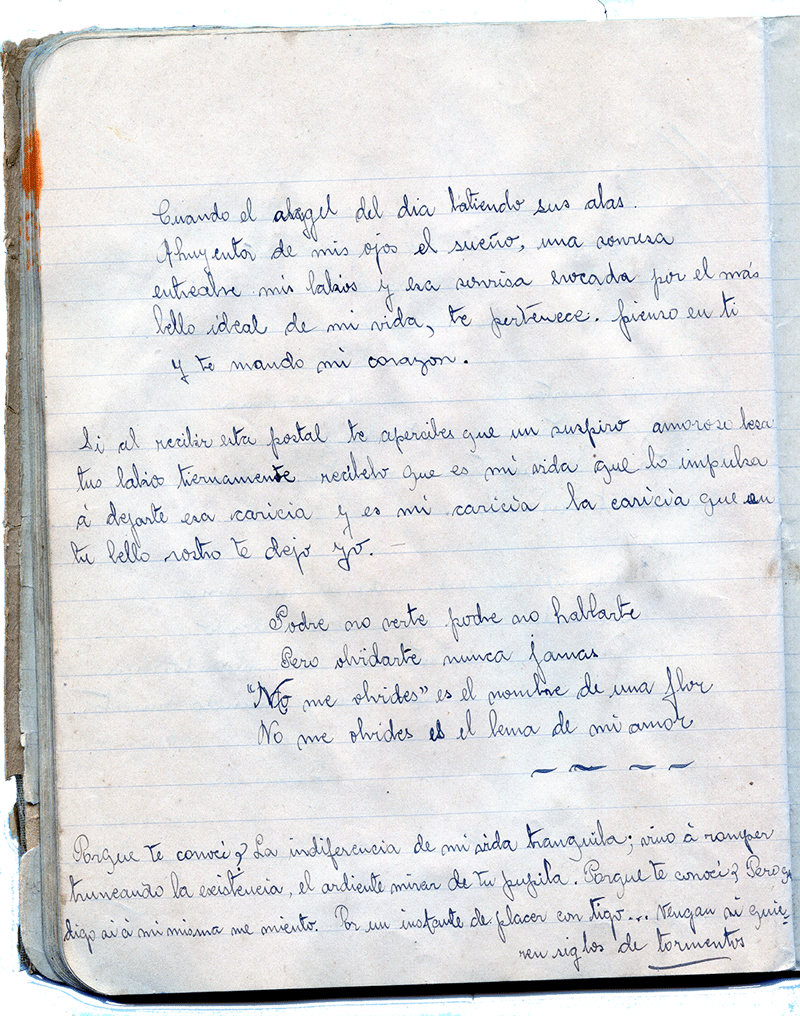 Cuando el angel del dia batiendo sus alas.
Ahuyenta de mis ojos el sueño, una sonresa
entreabre mis labios y esa sonrisa evocada por el más
bello ideal de mi vida, te pertenece. pienso en ti
y te mando mi corazon.
Si al recibir esta postal te apercibes que un suspiro amoroso besa
tus labios tiernamente recibelo que es mi vida que lo impulsa
á dejarte esa caricia y es mi caricia la caricia que en
tu bello rostro te dejo yo.
Podre no verte podre no hablarte
Pero olvidarte nunca jamas
"No me olvides" es el nombre de una flor
No me olvides es el lema de mi amor
Porque te conoci? La indiferencia de mi vida tranquila; vino á romper
truncando la existencia, el ardiente mirar de tu pupila. Porque te conoci? Pero que
digo si á mi misma me miento. Por un instante de placer con tigo... Vengan si quie-
ren siglos de tormentos